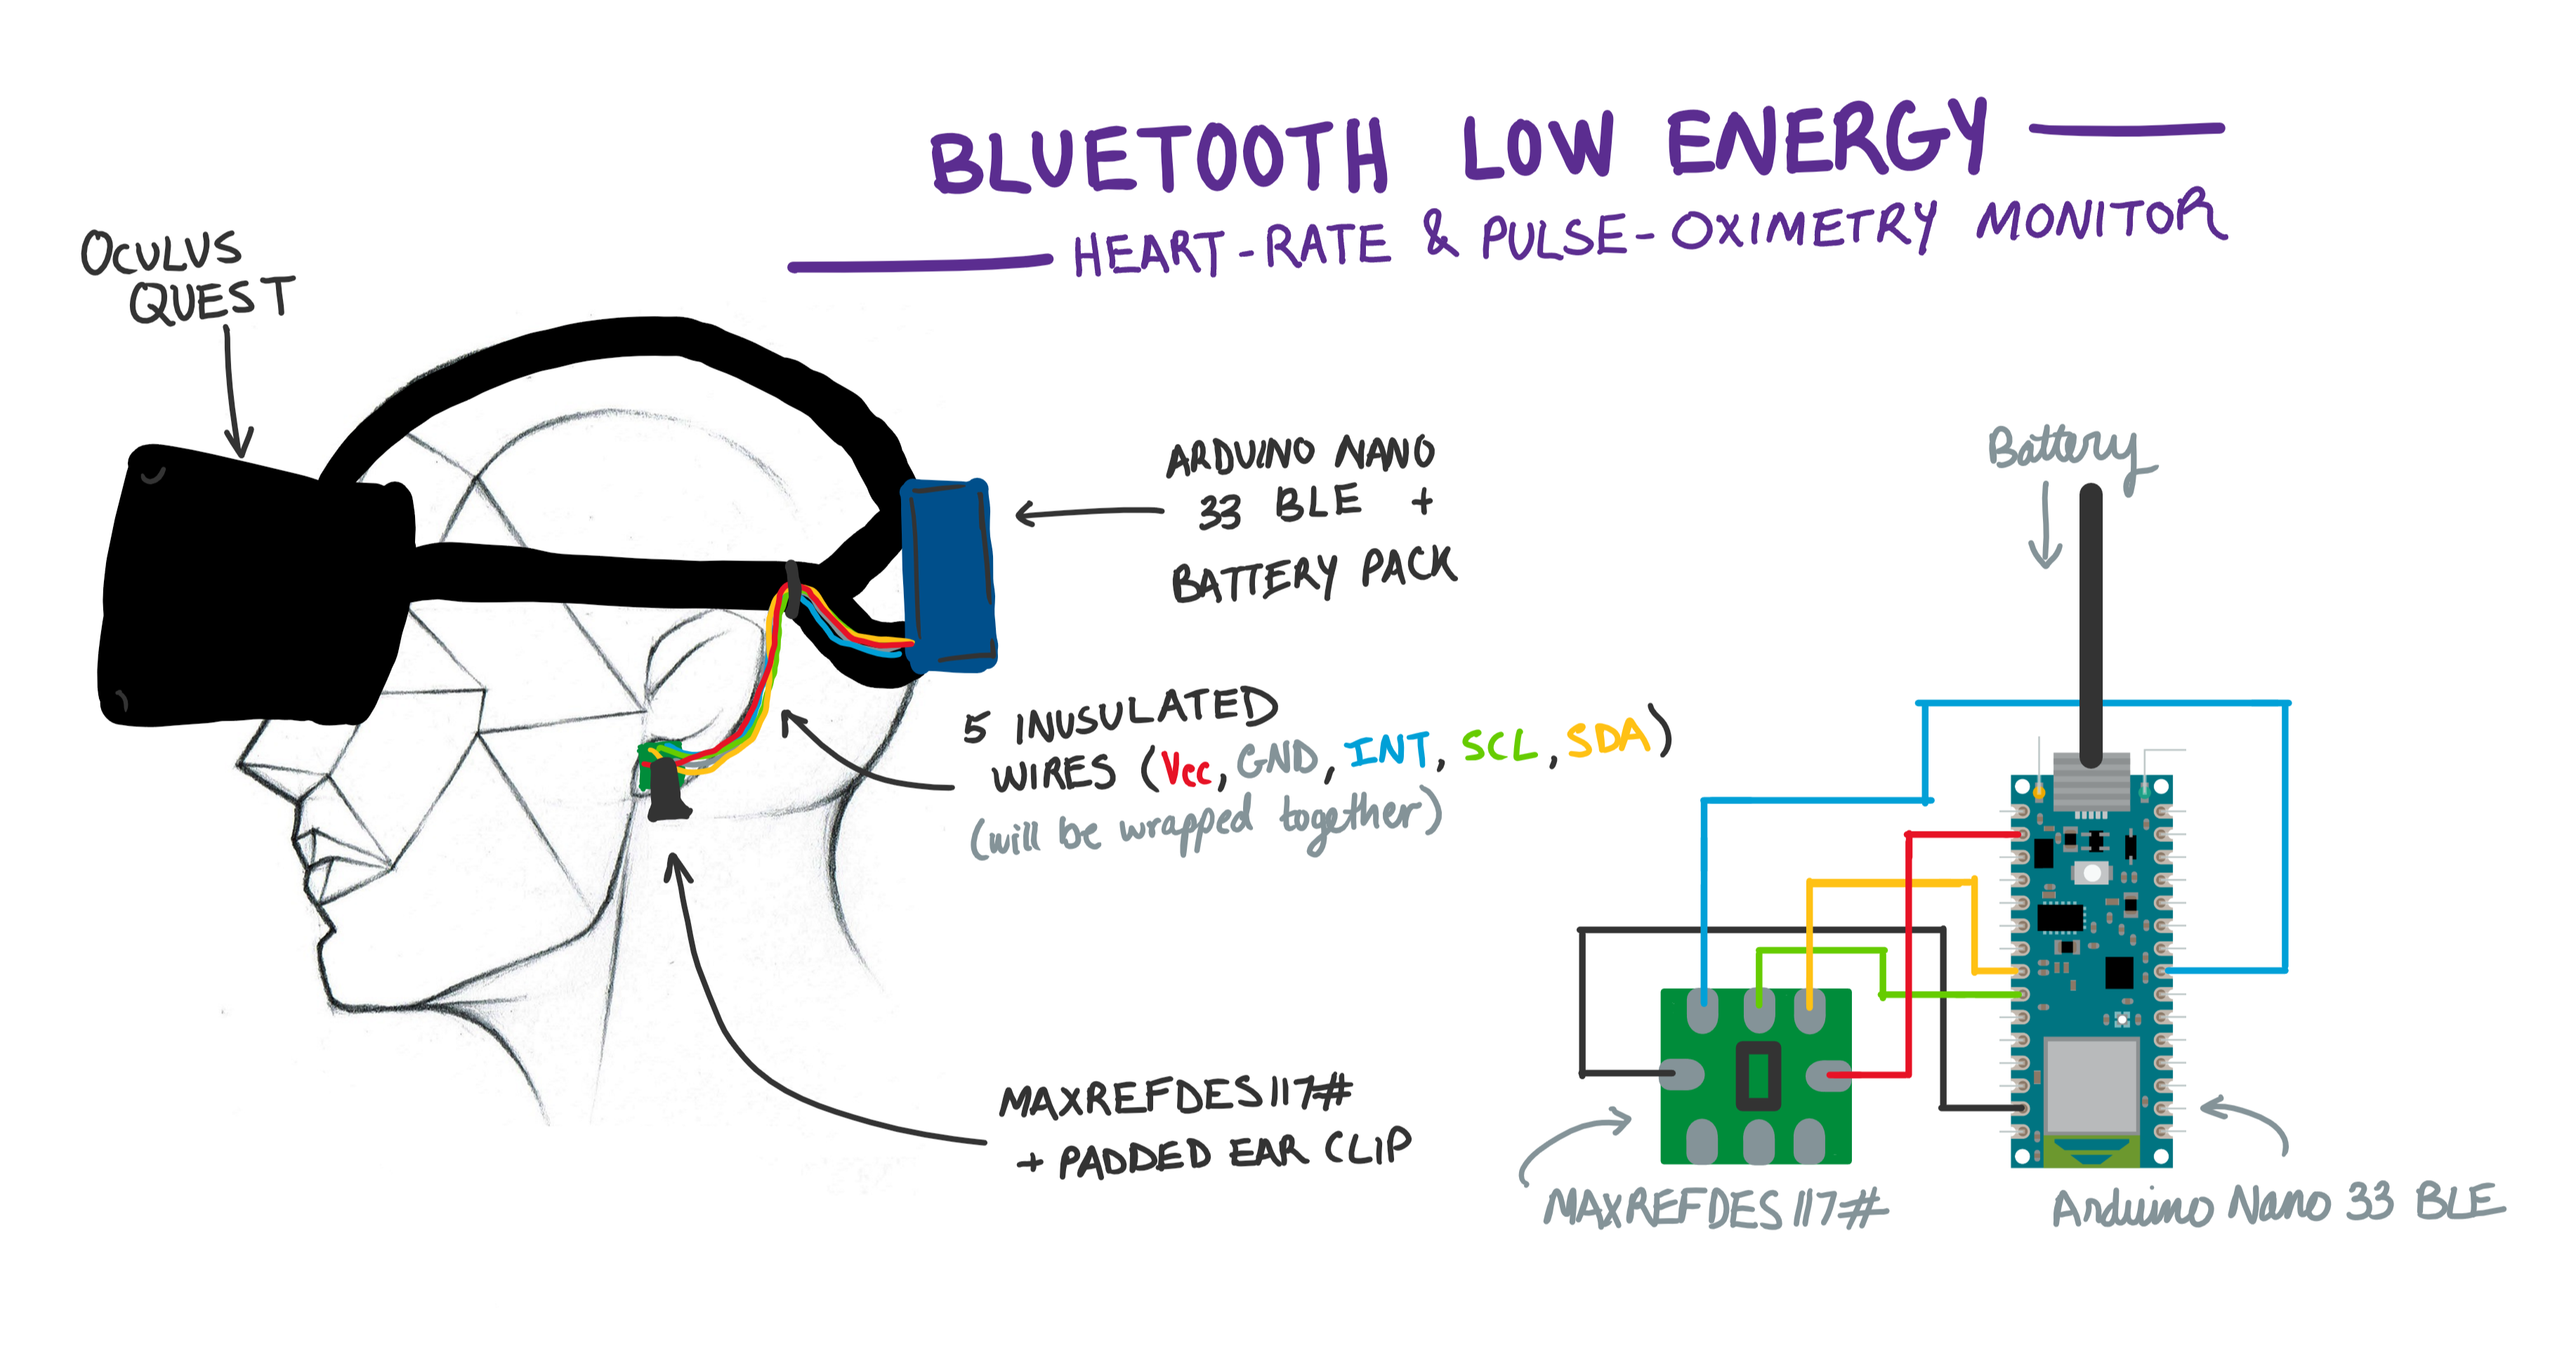 BLUETOOTH LOW ENERGY
HEART-RATE & PULSE-OXIMETRY MONITOR
OCULUS
QUEST
ARDUINO NANO
33 BLE +
BATTERY PACK
5 INUSULATED
WIRES (Vcc, GND, INT, SCL, SDA)
(will be wrapped together)
MAXREFDES117#
+ PADDED EAR CLIP
Battery
MAXREFDES117#
Arduino Nano 33 BLE